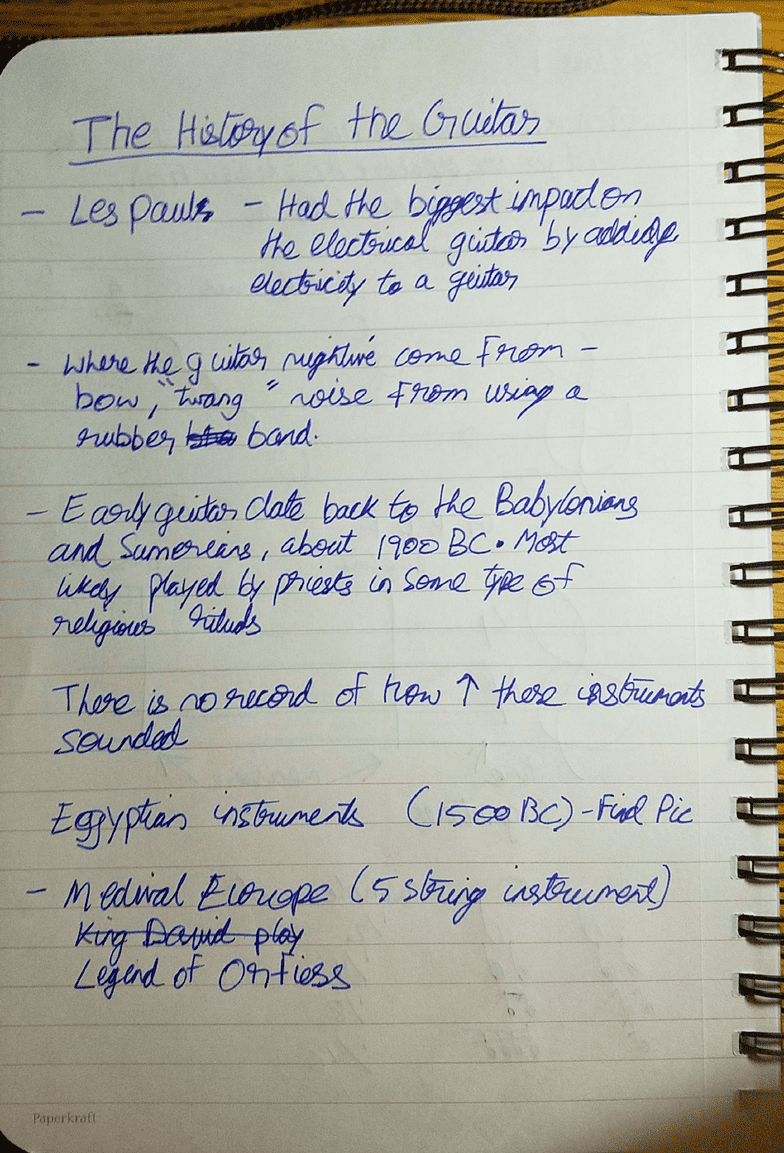 The History of the Guitar
- Les Paul - Had the biggest impact on
the electrical guitar by adding
electricity to a guitar
- Where the guitar might've come from -
bow, "twang" noise from using a
rubber band.
- Early guitar date back to the Babylonians
and Sumereians, about 1900 BC. Most
likely played by priests in some type of
religious rituals
There is no record of how ↑ these instruments
sounded
Egyptian instruments (1500 BC) - Find Pic
- Medival Europe (5 string instrument)
King David play
Legend of Orfioss
Paperkraft